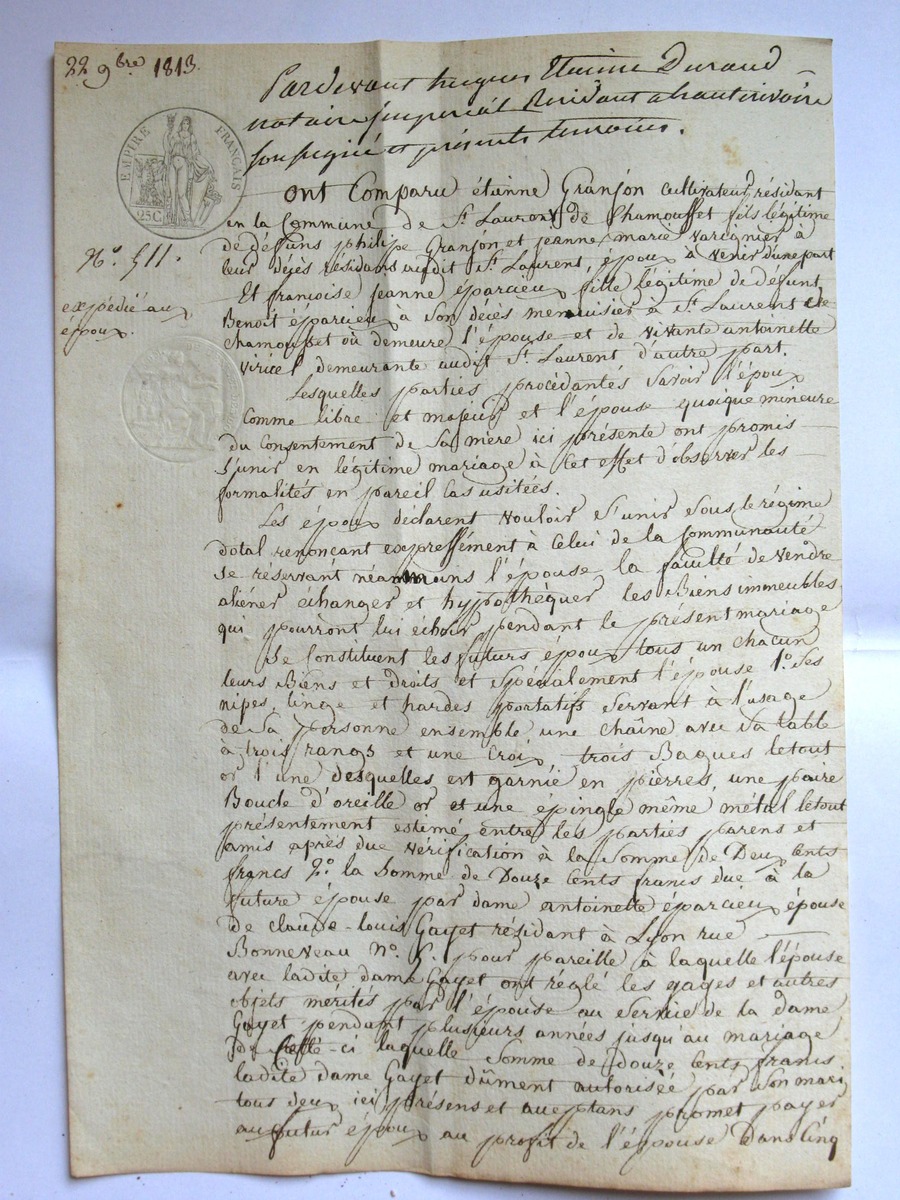 22 9bre 1813.
Pardevant hugues Etienne Durand
notaire impérial Résidant a hauterivoire
soussigné et présents témoins.
EMPIRE FRANÇAIS
25C
No. 511.
expédié au
époux.
Ont Comparu étienne Granjon cultivateur résidant
en la Commune de St. Laurent de Chamousset fils légitime
de défuns philipe Granjon et jeanne marie Varignier à
leur décès résidans audit St. Laurent, époux à venir d'une part
Et françoise jeanne éparcieux fille légitime de défunt
Benoit éparcieux à son décès menuisier à St. Laurent de
chamousset où demeure l'épouse et de vivante antoinette
Viricel demeurante audit St. Laurent d'autre part.
Lesquelles parties procédantés savoir l'époux
Comme libre et majeur et l'épouse quoique mineure
du Consentement de sa mère ici présente ont promis
s'unir en légitime mariage à cet effet d'observer les
formalités en pareil cas usitées.
Les époux déclarent vouloir s'unir sous le régime
dotal renonçant expressément à Celui de la Communauté
se réservant néanmoins l'épouse la faculté de vendre
aliéner échanger et hypothèquer les Biens immeubles
qui pourront lui échoir pendant le présent mariage
Se Constituent les futurs époux tous un chacun
leurs Biens et droits et spécialement l'épouse 1o. ses
nipes, linge et hardes portatifs servant à l'usage
de sa personne ensemble une chaîne avec sa table
à trois rangs et une Croix trois Bagues le tout
or l'une desquelles est garnie en pierres, une paire
Boucle d'oreille or et une épingle même métal le tout
présentement estimé entre les parties parens et
amis après due vérification à la somme de Deux Cents
francs 2o. la somme de Douze Cents francs due à la
future épouse par dame antoinette éparcieux épouse
de claude-louis Gayet résidant à Lyon rue
Bonneveau No. 5. pour pareille à laquelle l'épouse
avec ladite dame Gayet ont réglé les gages et autres
objets mérités par l'épouse au service de la dame
Gayet pendant plusieurs années jusqu'au mariage
de Celle-ci laquelle somme de douze Cents francs
ladite dame Gayet dûment autorisée par son mari
tous deux ici présens et aceptans promet payer
au futur époux au profit de l'épouse Dans Cinq